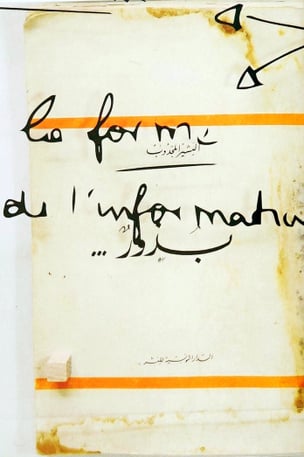 la forme
البشير المجذوب
de l'informatio
بــذور ...
الدار التونسية للنشر